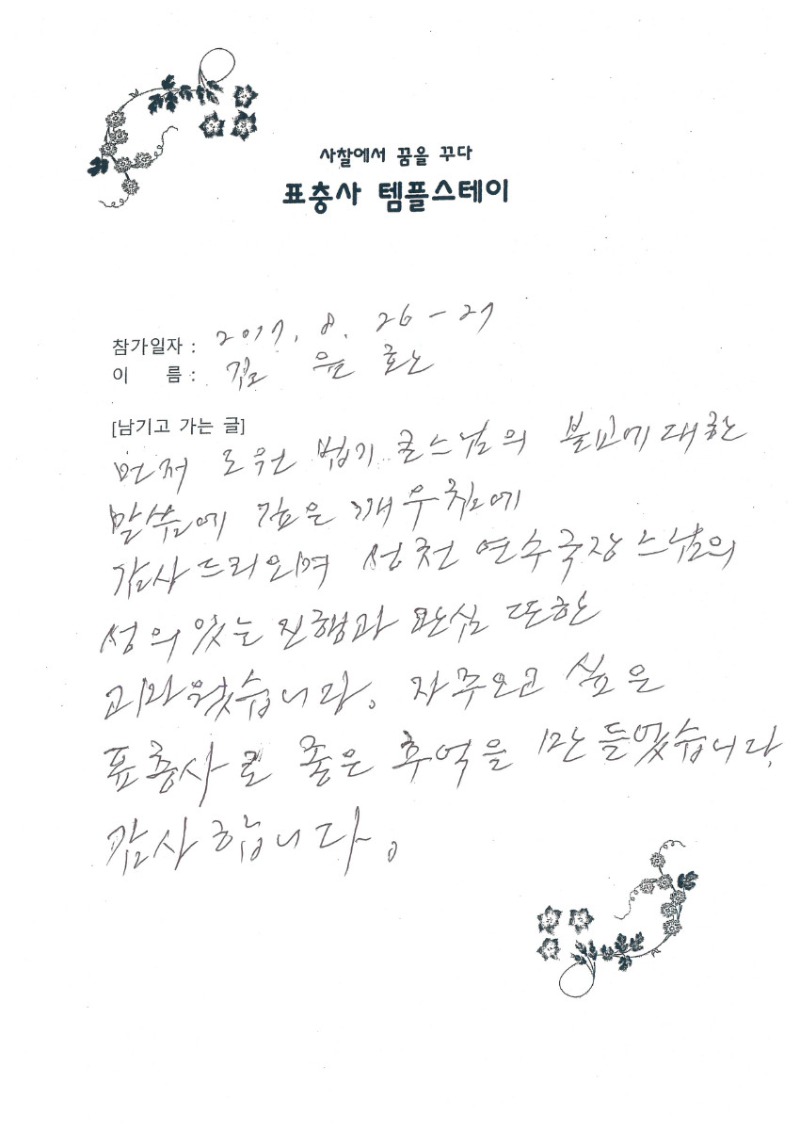 사찰에서 꿈을 꾸다
표충사 템플스테이
참가일자 : 2017. 8. 26 - 27
이 름 : 김 윤 환
[남기고 가는 글]
먼저 도원 법기 큰스님의 불교에 대한
말씀에 깊은 깨우침에
감사드리오며 성천 연수국장 스님의
성의 있는 진행과 관심 또한
고마웠습니다. 자주오고 싶은
표충사로 좋은 추억을 만들었습니다.
감사합니다.